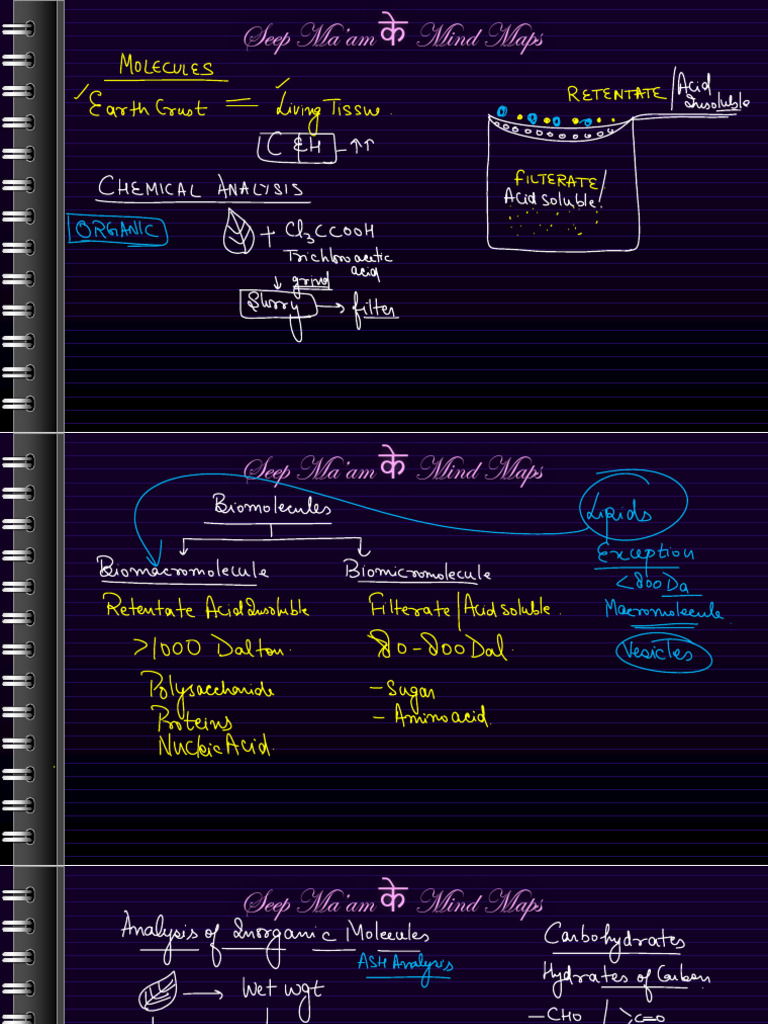 Seep Ma'am के Mind Maps
MOLECULES
✓Earth Crust = Living Tissue.
C & H - ↑↑
RETENTATE / Acid Insoluble
FILTERATE / Acid soluble
CHEMICAL ANALYSIS
ORGANIC
+ Cl3CCOOH
Trichloroacetic acid
↓ grind
Slurry → filter
Seep Ma'am के Mind Maps
Biomolecules
Lipids
Exception
<800 Da
Macromolecule
Vesicles
Biomacromolecule
Retentate Acid Insoluble
>1000 Dalton.
Polysaccharide
Proteins
Nucleic Acid.
Biomicromolecule
Filterate / Acid soluble.
80-800 Dal.
- Sugar
- Amino acid.
Seep Ma'am के Mind Maps
Analysis of Inorganic Molecules
ASH Analysis
→ Wet wgt
Carbohydrates
Hydrates of Carbon
-CHO / >C=O